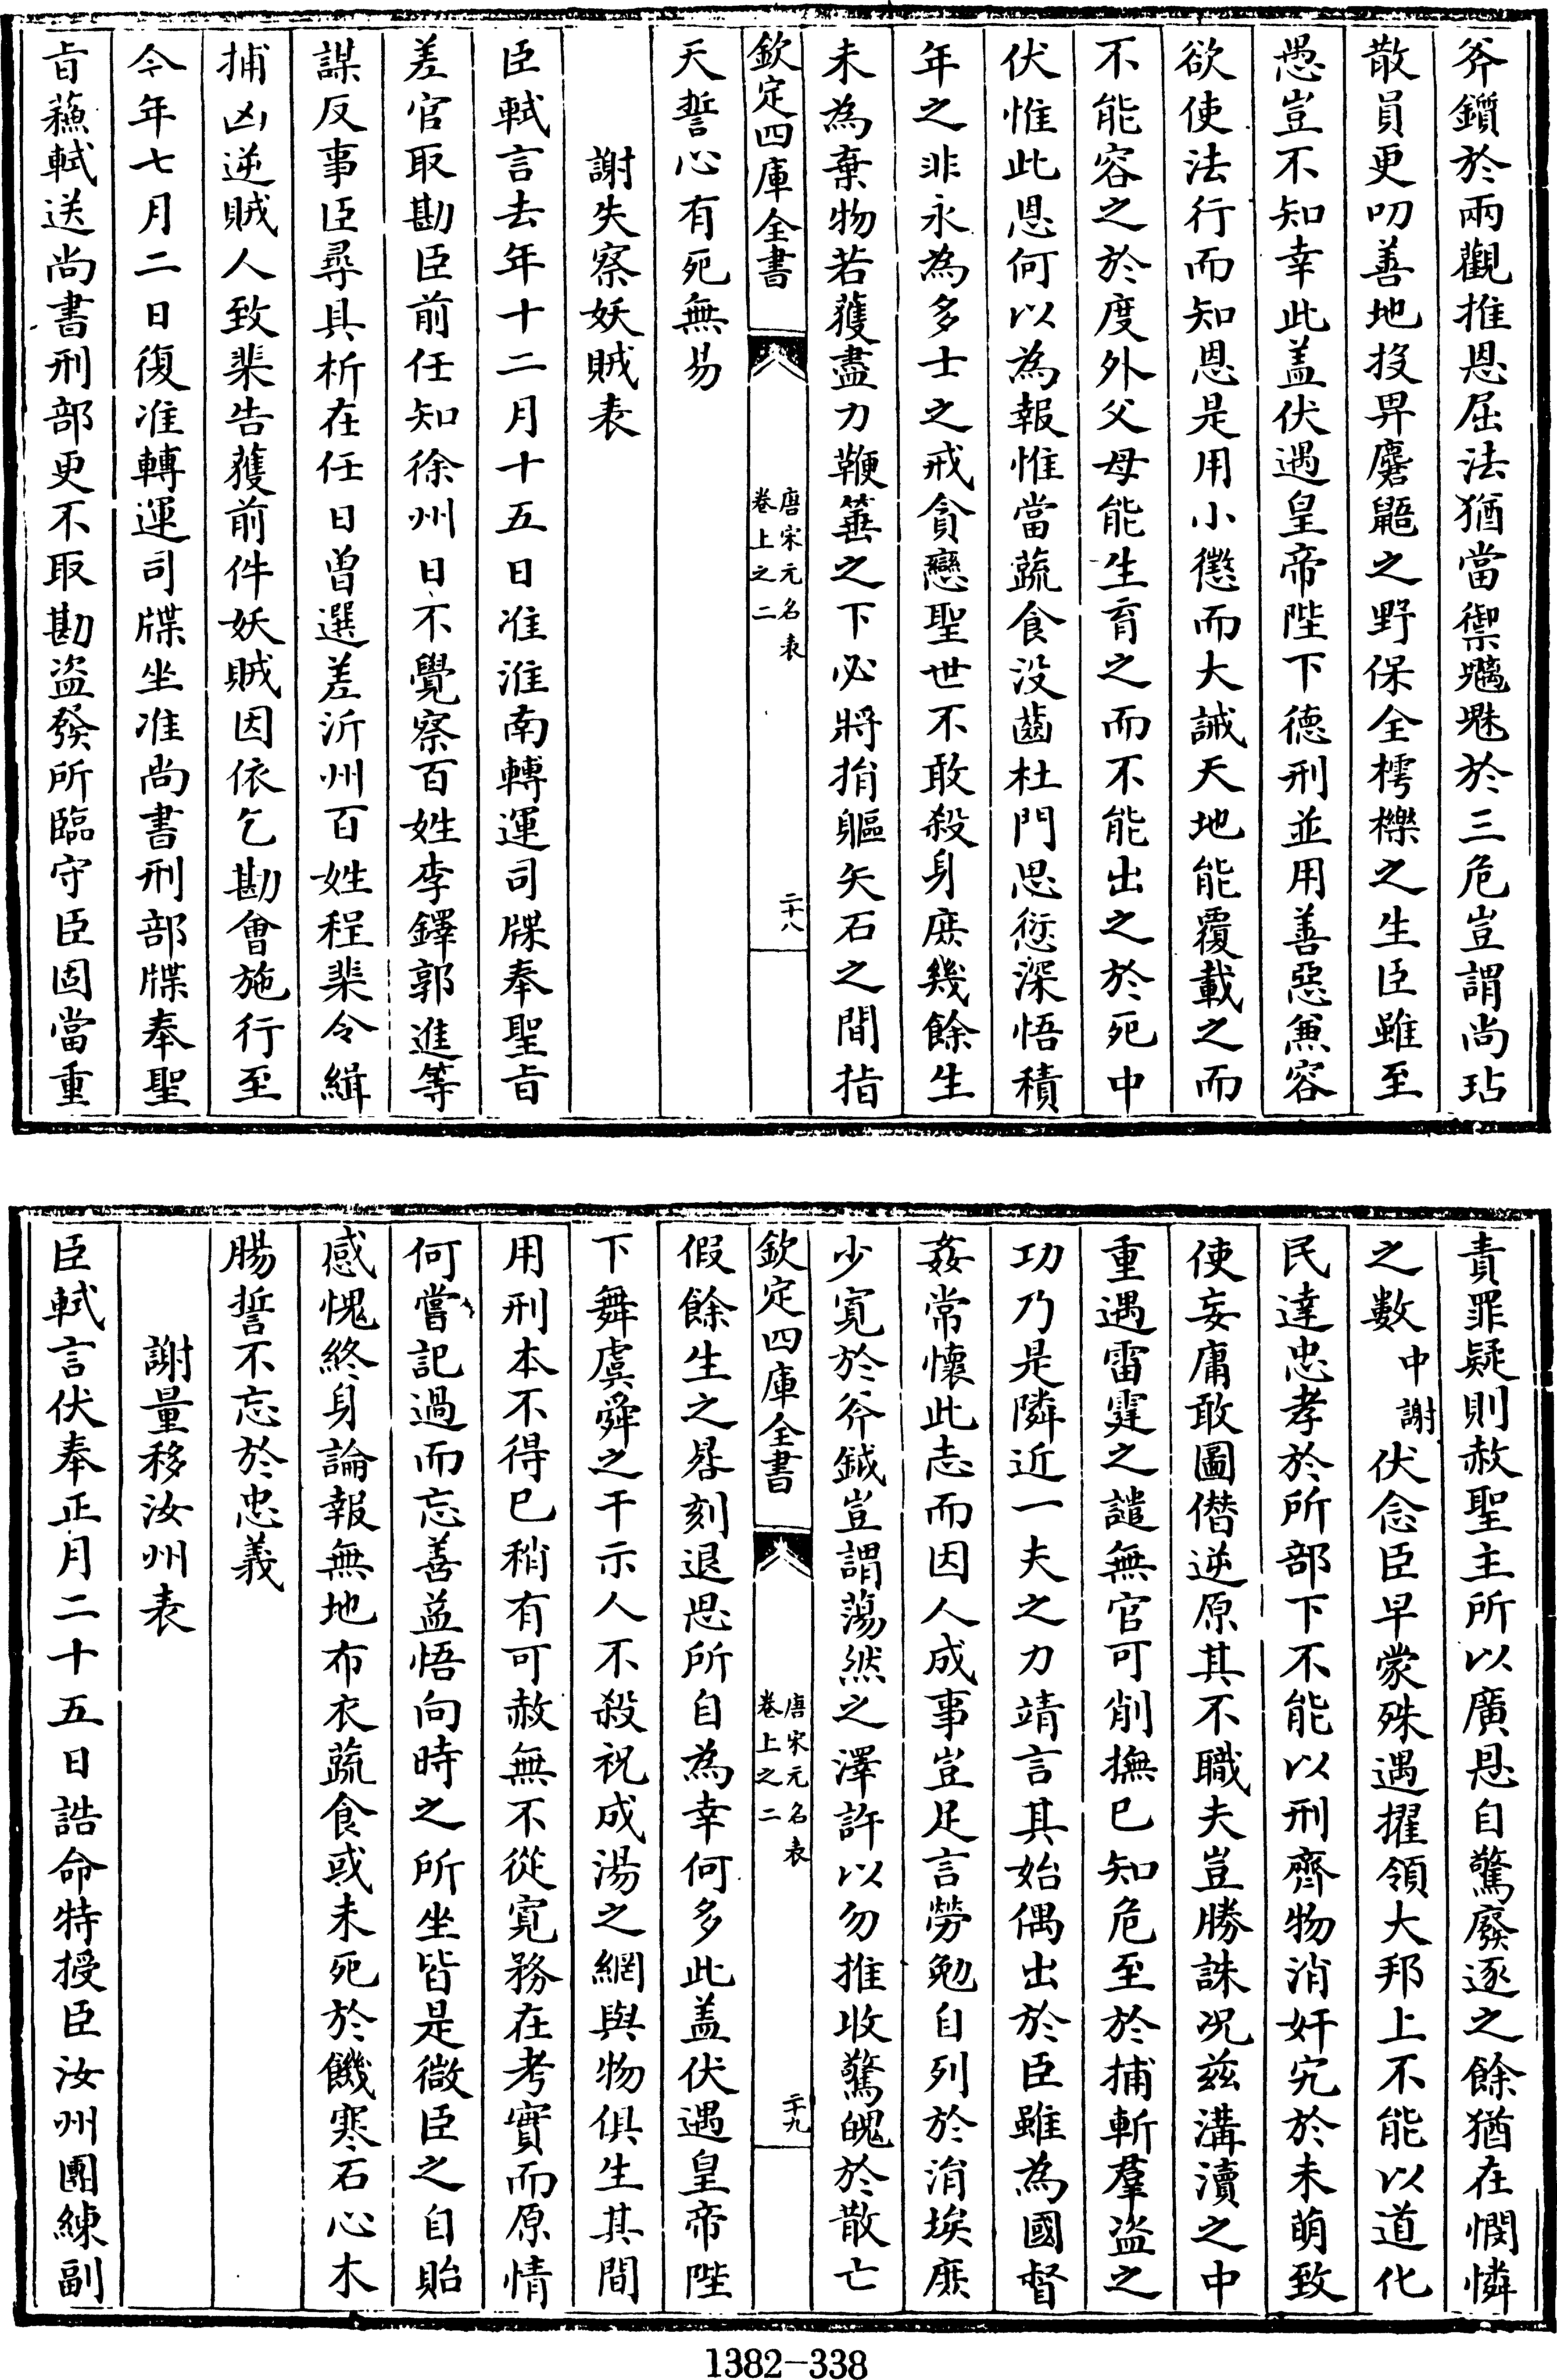 斧鑕於兩觀推恩屈法猶當禦魑魅於三危豈謂尚玷
散員更叨善地投畀麏鼯之野保全樗櫟之生臣雖至
愚豈不知幸此盖伏遇皇帝陛下德刑並用善惡兼容
欲使法行而知恩是用小懲而大誡天地能覆載之而
不能容之於度外父母能生育之而不能出之於死中
伏惟此恩何以為報惟當蔬食没齒杜門思愆深悟積
年之非永為多士之戒貪戀聖世不敢殺身庶幾餘生
未為棄物若獲盡力鞭箠之下必將捐軀矢石之間指
欽定四庫全書
唐宋元名表
卷上之二
二十八
天誓心有死無易
謝失察妖賊表
臣軾言去年十二月十五日准淮南轉運司牒奉聖旨
差官取勘臣前任知徐州日不覺察百姓李鐸郭進等
謀反事臣尋具析在任日曾選差沂州百姓程棐令緝
捕凶逆賊人致棐告獲前件妖賊因依乞勘會施行至
今年七月二日復准轉運司牒坐准尚書刑部牒奉聖
旨蘓軾送尚書刑部更不取勘盜發所臨守臣固當重
責罪疑則赦聖主所以廣恩自驚廢逐之餘猶在憫憐
之數中謝伏念臣早蒙殊遇擢領大邦上不能以道化
民達忠孝於所部下不能以刑齊物消奸宄於未萌致
使妄庸敢圖僭逆原其不職夫豈勝誅况兹溝瀆之中
重遇雷霆之譴無官可削撫已知危至於捕斬羣盜之
功乃是隣近一夫之力靖言其始偶出於臣雖為國督
姦常懷此志而因人成事豈足言勞勉自列於涓埃庶
少寛於斧鉞豈謂蕩然之澤許以勿推收驚魄於散亡
欽定四庫全書
唐宋元名表
卷上之二
二十九
假餘生之晷刻退思所自為幸何多此盖伏遇皇帝陛
下舞虞舜之干示人不殺祝成湯之網與物俱生其間
用刑本不得已稍有可赦無不從寛務在考實而原情
何嘗記過而忘善益悟向時之所坐皆是微臣之自貽
感愧終身論報無地布衣蔬食或未死於饑寒石心木
腸誓不忘於忠義
謝量移汝州表
臣軾言伏奉正月二十五日誥命特授臣汝州團練副
1382-338